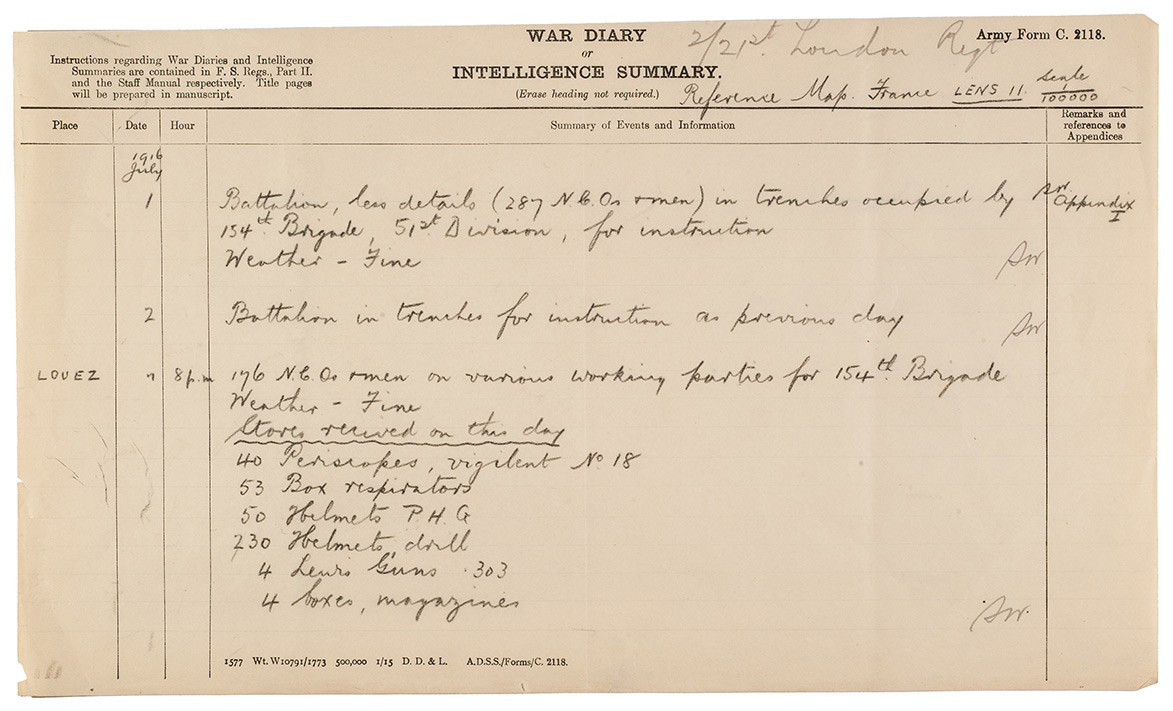 WAR DIARY
or
INTELLIGENCE SUMMARY.
(Erase heading not required.)
2/21st. London Regt
Army Form C. 2118.
Instructions regarding War Diaries and Intelligence
Summaries are contained in F. S. Regs., Part II.
and the Staff Manual respectively. Title pages
will be prepared in manuscript.
Reference Map. France LENS 11. scale 1/100000
Place Date Hour Summary of Events and Information Remarks and
references to
Appendices
1916
July
1 Battalion, less details (287 N.C.Os & men) in trenches occupied by Appendix
154th Brigade, 51st Division, for instruction I
Weather - Fine
2 Battalion in trenches for instruction as previous day
LOUEZ " 8 p.m 176 N.C.Os & men on various working parties for 154th. Brigade
Weather - Fine
Stores recived on this day
40 Periscopes, vigilent No 18
53 Box respirators
50 Helmets P.H.G
230 Helmets, drill
4 Lewis Guns .303
4 boxes, magazines
1577 Wt. W10791/1773 500,000 1/15 D. D. & L. A.D.S.S./Forms/C. 2118.